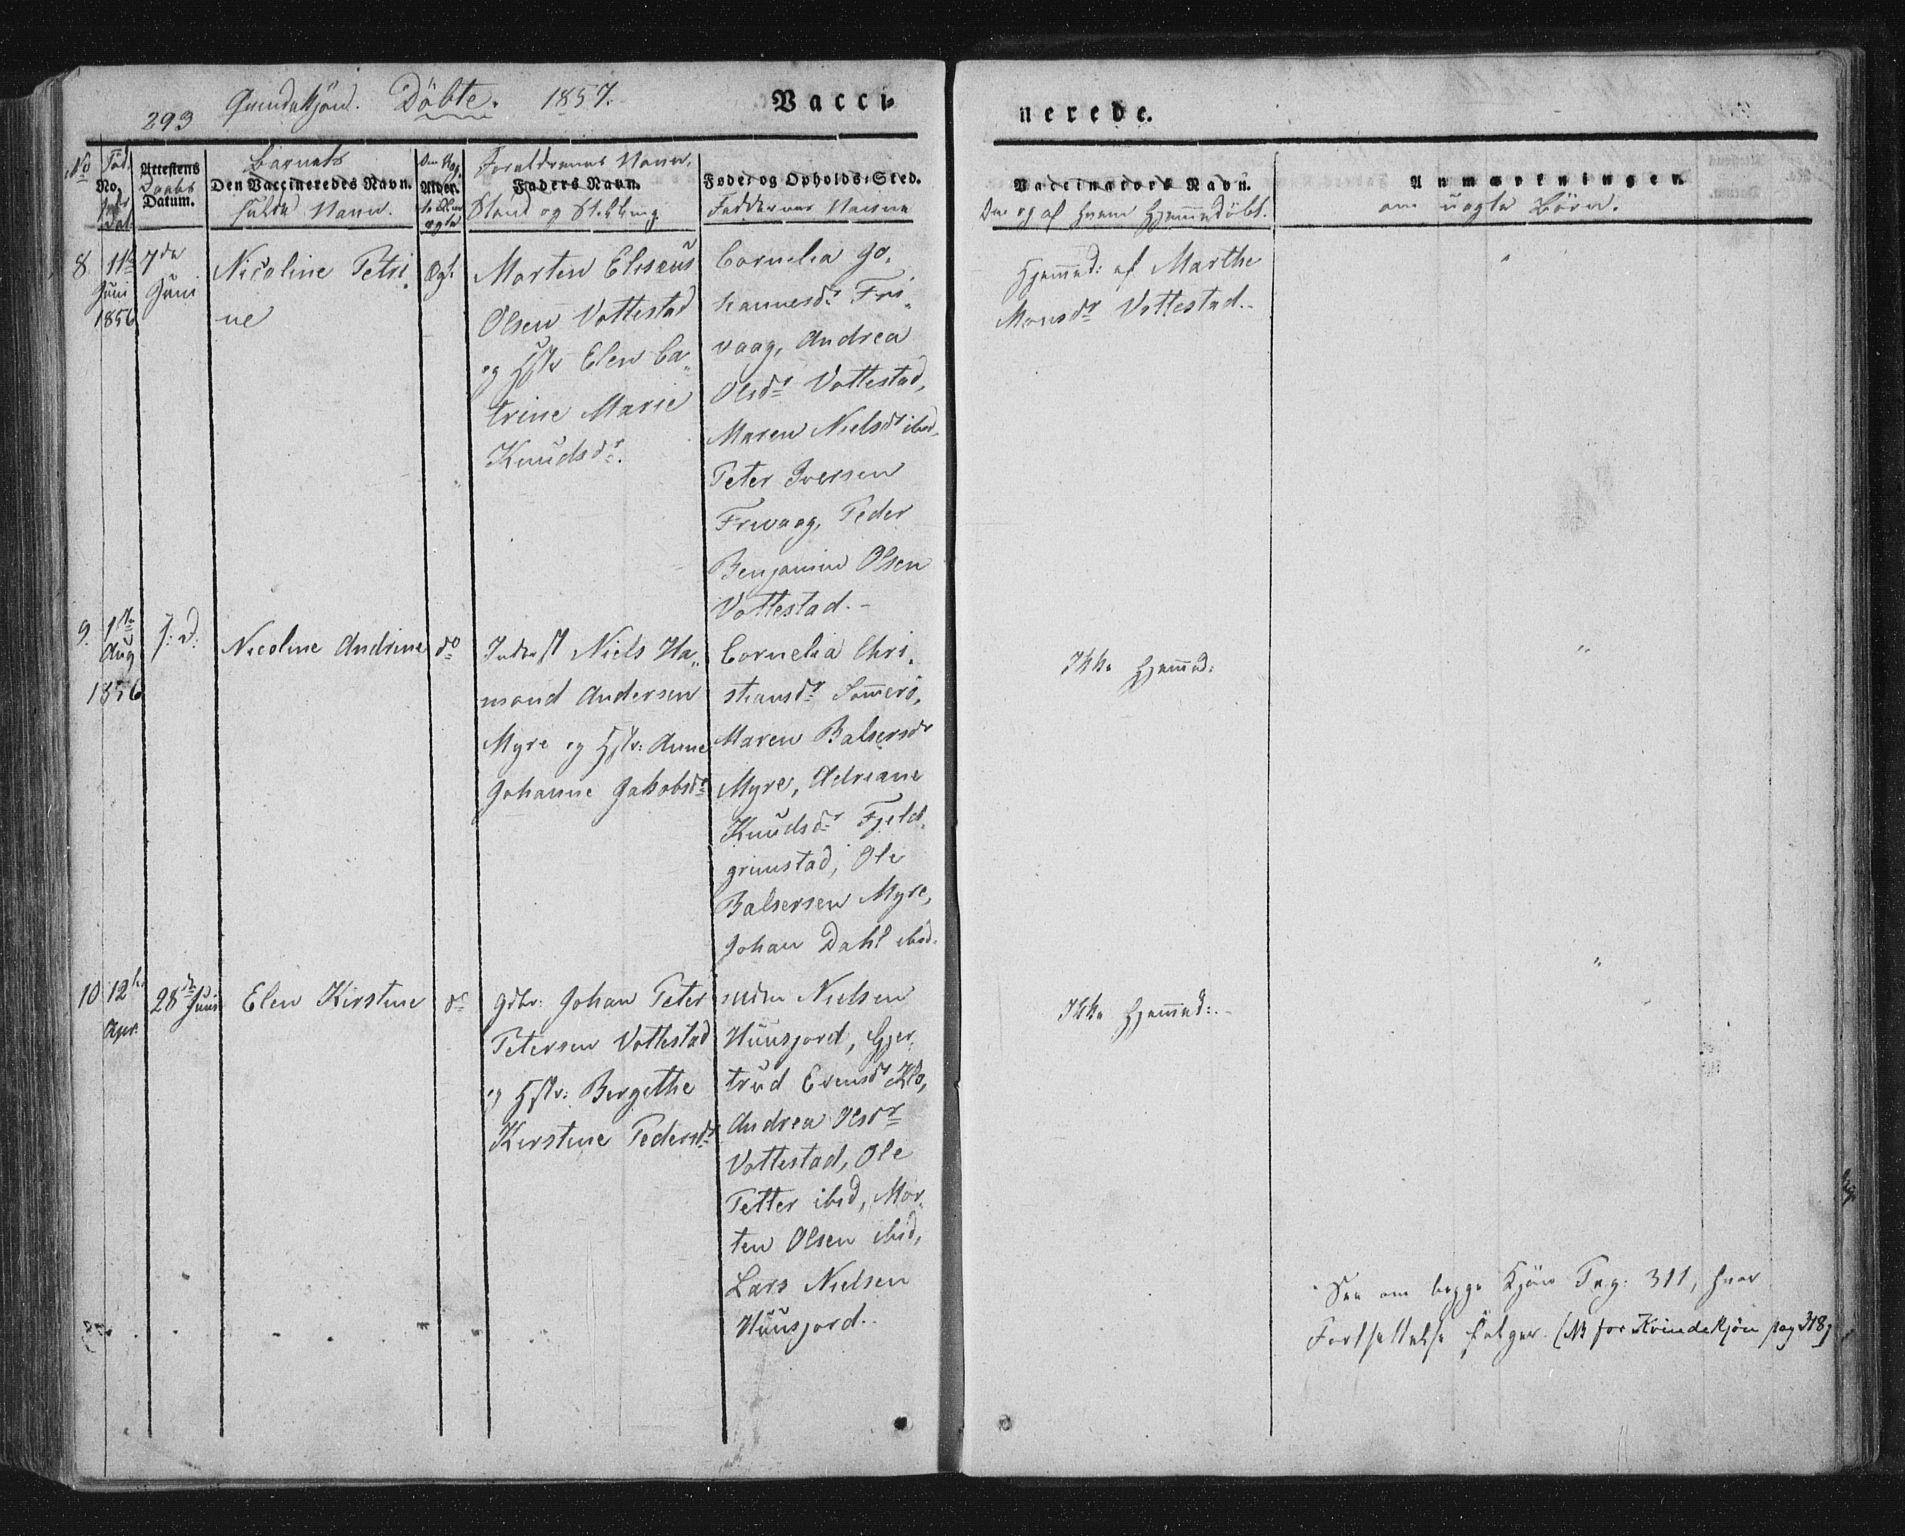 293 Qvindekjön. Döbte. 1857. Vacci- nerede.
No Föd. No. Aar Dat.
Attestens Daabs Datum.
Barnets
Den Vaccineredes Navn.
fulde Navn.
Alder.
Forældrenes Navn,
Faders Navn.
Stand og Stilling
Føde- og Opholds-Sted.
Faddernes Navne
Vaccinators Navn.
Om og af hvem Hjemmedöbt.
Anmærkninger
om uægte Börn.
8 11te Juni 1856
7de Juni
Nicoline Petri-
ne
Ægt.
Morten Elisæus
Olsen Vottestad
og Hstr Elen Ca-
trine Marie
Knudsdr.
Cornelia Jo-
hannesdr Fri-
vaag, Andrea
Olsdr Vottestad,
Maren Nielsdr ibid.
Peter Iversen
Frivaag, Peder
Benjamin Olsen
Vottestad.-
Hjemmed: af Marthe
Monsdr Vottestad.-
"
9. 1ste Aug 1856
s: D:
Nicoline Andrine
do
Inderst Niels Ha-
mond Andersen
Myre og Hstr: Anne
Johanne Jakobsdr
Cornelia Chri-
stiansdr Sommerö,
Maren Balsersdr
Myre, Adriane
Knudsdr Fjeld-
grimstad, Ole
Balsersen Myre,
Johan Dahl ibid.
Ikke Hjemmed:
"
10 12te Apr.
28de Juni
Elen Kirstine
do
Gdbr: Johan Peter
Petersen Vottestad
og Hstr: Bergethe
Kirstine Pedersdr
Nielsen
Huusjord, Gjer-
trud Evensdr Klo,
Andrea Olsdr
Vottestad, Ole
Petter ibid, Mor-
ten Olsen ibid,
Lars Nielsen
Huusjord.
Ikke Hjemmed:.-
"
See om begge Kjön Pag: 311, hvor
Fortsættelse fölger. (NB for Kvindekjön pag 318)